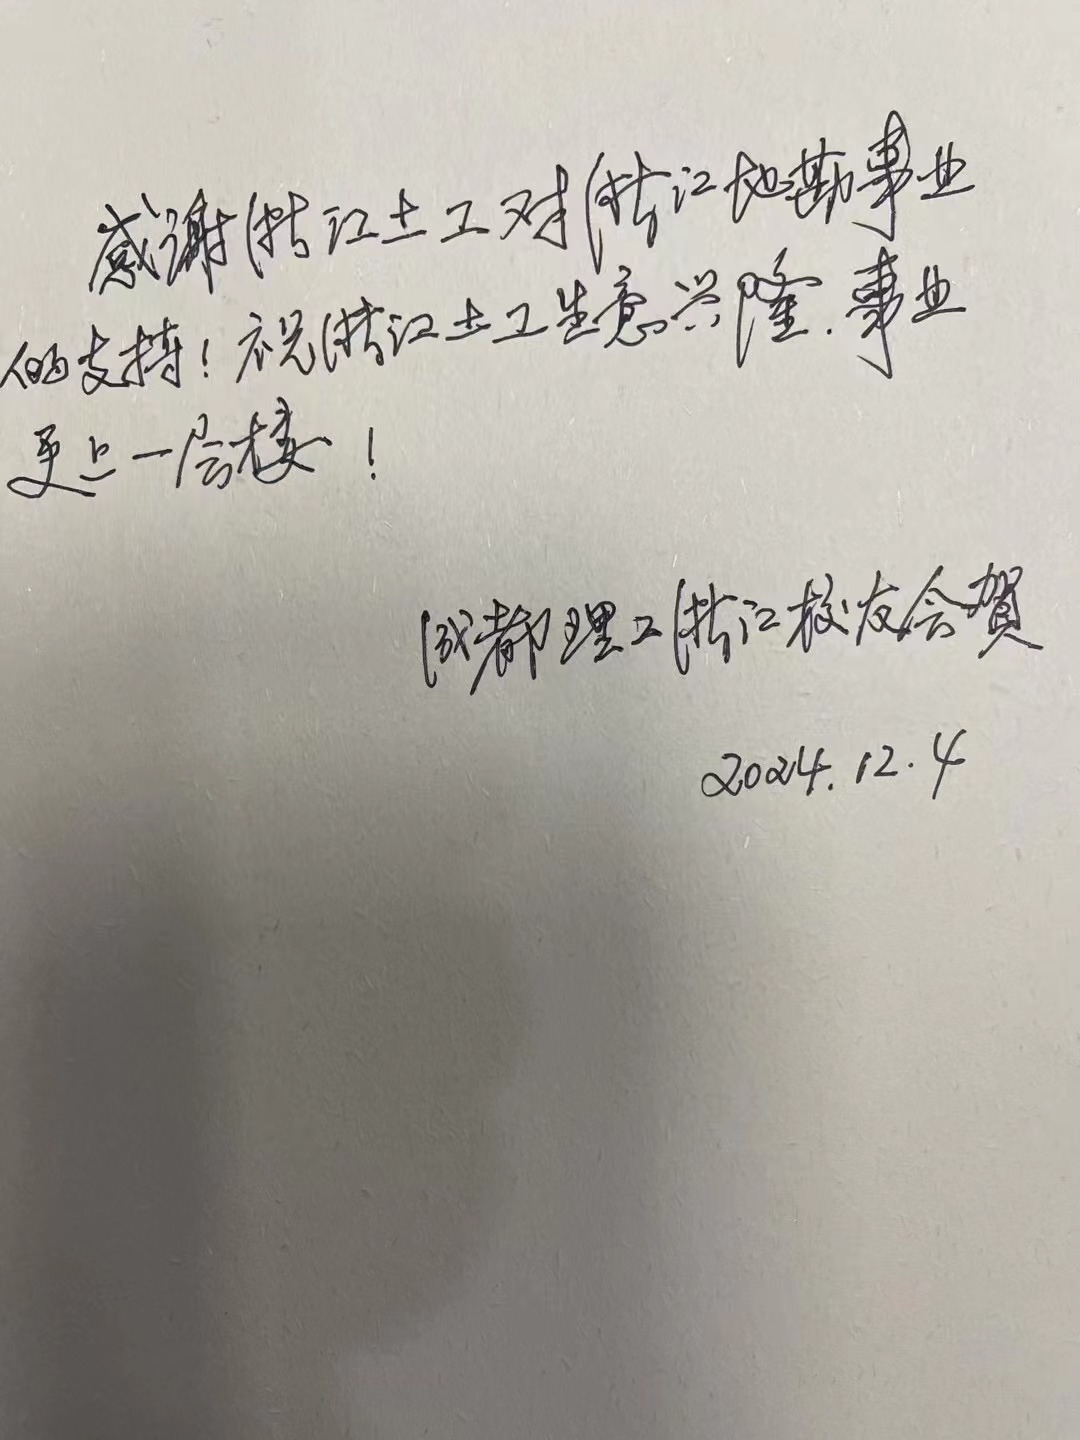 感谢浙江土工对浙江地勘事业
的支持！祝浙江土工生意兴隆.事业
更上一层楼！
成都理工浙江校友会贺
2024.12.4